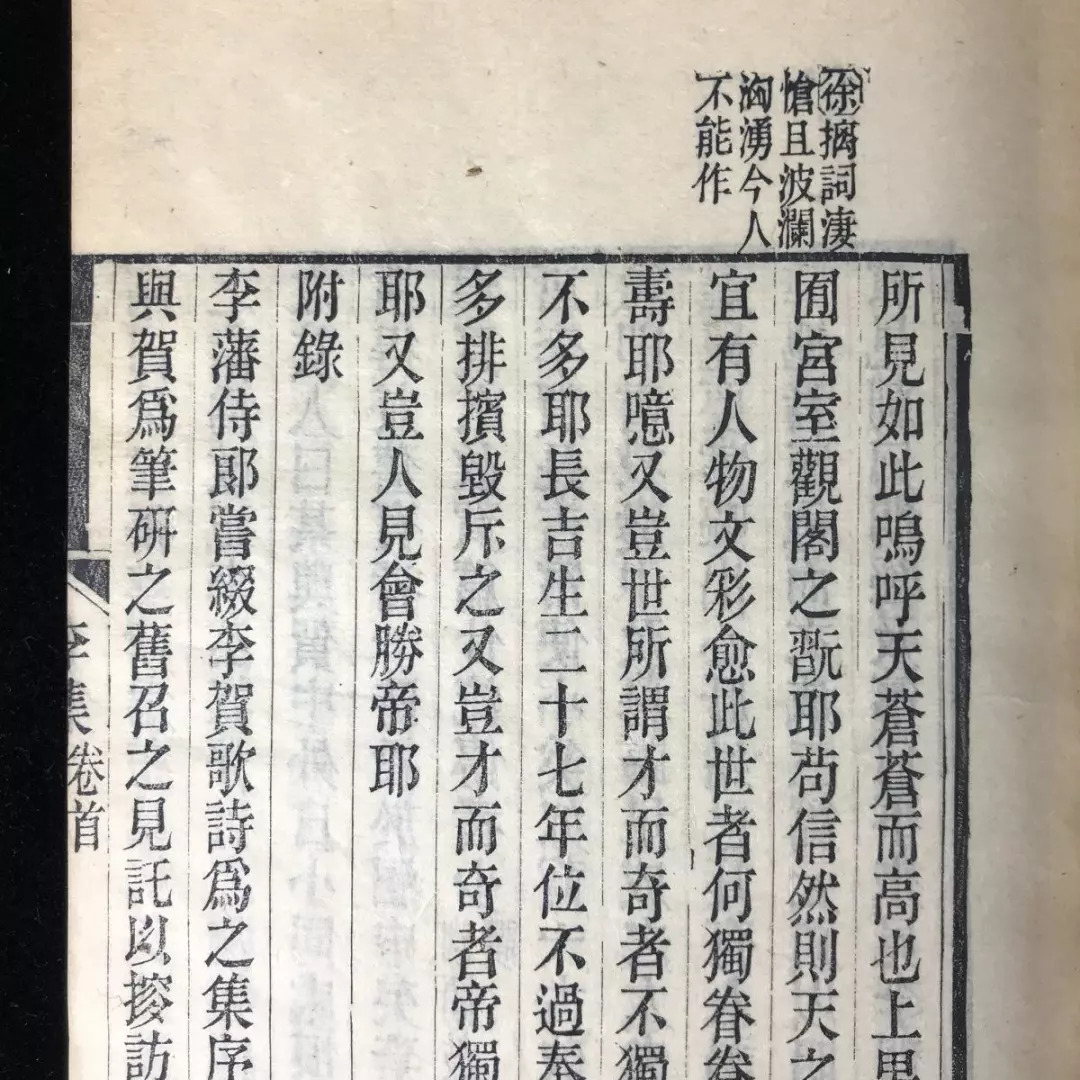 徐摛詞淒
愴且波瀾
洶湧今人
不能作
所見如此嗚呼天蒼蒼而高也上
囿宮室觀閣之翫耶苟信然則天之
宜有人物文彩愈此世者何獨眷眷
壽耶噫又豈世所謂才而奇者不獨
不多耶長吉生二十七年位不過奉
多排擯毀斥之又豈才而奇者帝獨
耶又豈人見會勝帝耶
附錄
李藩侍郎嘗綴李賀歌詩爲之集序
與賀爲筆硏之舊召之見託以搜訪
李集卷首